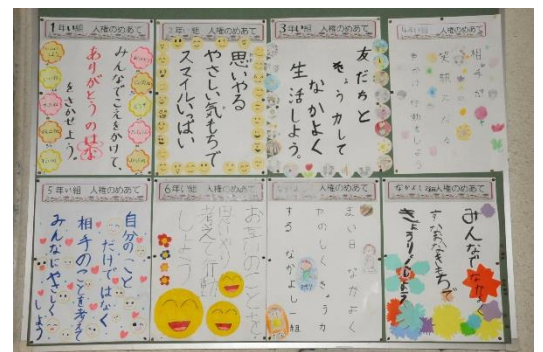 1年い組 人権のめあて
みんなでこえをかけて、
ありがとうのはな
をさかせよう。
2年い組 人権のめあて
思いやる
やさしい気もちで
スマイルいっぱい
3年い組 人権のめあて
友だちと
きょう力して
なかよく
生活しよう。
4年い組 人権のめあて
相手が
笑顔になる
行動をしよう
5年い組 人権のめあて
自分のこと
だけではなく
相手のことを考えて
みんなにやさしく
しよう
6年い組 人権のめあて
お友だちのことを
考えて行動
しよう
人権のめあて
なかよく
たのしく きょう力
する なかよし一組
なかよし2組 人権のめあて
みんなで なかよく
すなおなきもちで
きょうりょくしよう